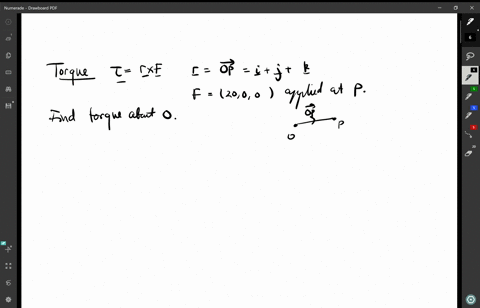 Numerade - Drawboard PDF
Torque τ = r×F r = OP = i + j + k
F = (20,0,0) applied at P.
Find torque about O.
OP
O P